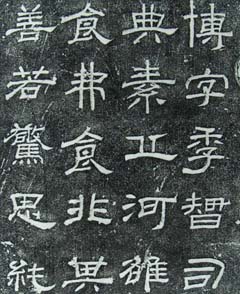 博字季智司
典素丘河雒
食弗食非其
善若驚思純